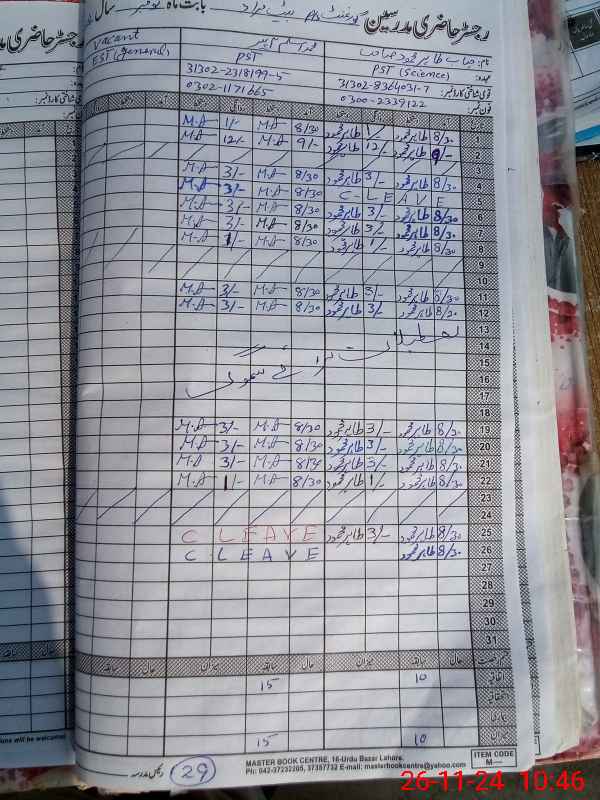 رجسٹر حاضری مدرسین گورنمنٹ p/s بابت ماہ نومبر سال
نام: جناب طاہر محمود صاحب
Vacant
عہدہ: PST (Science) PST EST (general)
قومی شناختی کارڈ نمبر: 31302-8364031-7 31302-2318199-5
فون نمبر: 0300-2339122 0302-1171665
1 8/30 طاہر محمود 1/- طاہر محمود 8/30 M.A 1/- M.A
2 9/- طاہر محمود 12/- طاہر محمود 9/- M.A 12/- M.A
3
4 8/30 طاہر محمود 3/- طاہر محمود 8/30 M.A 3/- M.A
5 C LEAVE 8/30 M.A 3/- M.A
6 8/30 طاہر محمود 3/- طاہر محمود 8/30 M.A 3/- M.A
7 8/30 طاہر محمود 3/- طاہر محمود 8/30 M.A 3/- M.A
8 8/30 طاہر محمود 1/- طاہر محمود 8/30 M.A 1/- M.A
9
10
11 8/30 طاہر محمود 3/- طاہر محمود 8/30 M.A 3/- M.A
12 8/30 طاہر محمود 3/- طاہر محمود 8/30 M.A 3/- M.A
13
14 تعطیلات
15 برائے
16 سموگ
17
18
19 8/30 طاہر محمود 3/- طاہر محمود 8/30 M.A 3/- M.A
20 8/30 طاہر محمود 3/- طاہر محمود 8/30 M.A 3/- M.A
21 8/30 طاہر محمود 3/- طاہر محمود 8/30 M.A 3/- M.A
22 8/30 طاہر محمود 1/- طاہر محمود 8/30 M.A 1/- M.A
23
24
25 8/30 طاہر محمود 3/- طاہر محمود C LEAVE
26 8/30 طاہر محمود C LEAVE
27
28
29
30
31
قسم رخصت حال سابقہ میزان حال سابقہ میزان حال سابقہ
اتفاقی 10 15
بیماری
میزان 10 15
MASTER BOOK CENTRE, 16-Urdu Bazar Lahore.
PH: 042-37232205, 37357732 E-mail: masterbookcentre@yahoo.com
ITEM CODE
M—
رئیس مدرسہ 29
will be welcomed
26-11-24 10:46